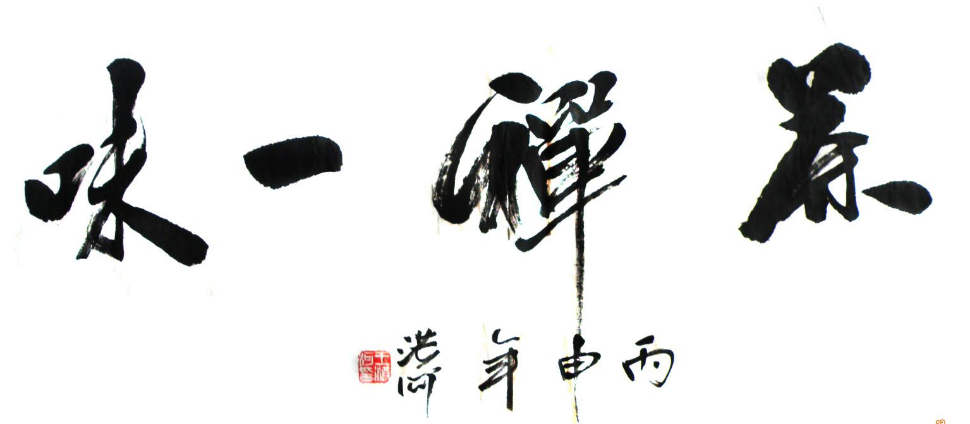 茶禪一味
丙申年 洪